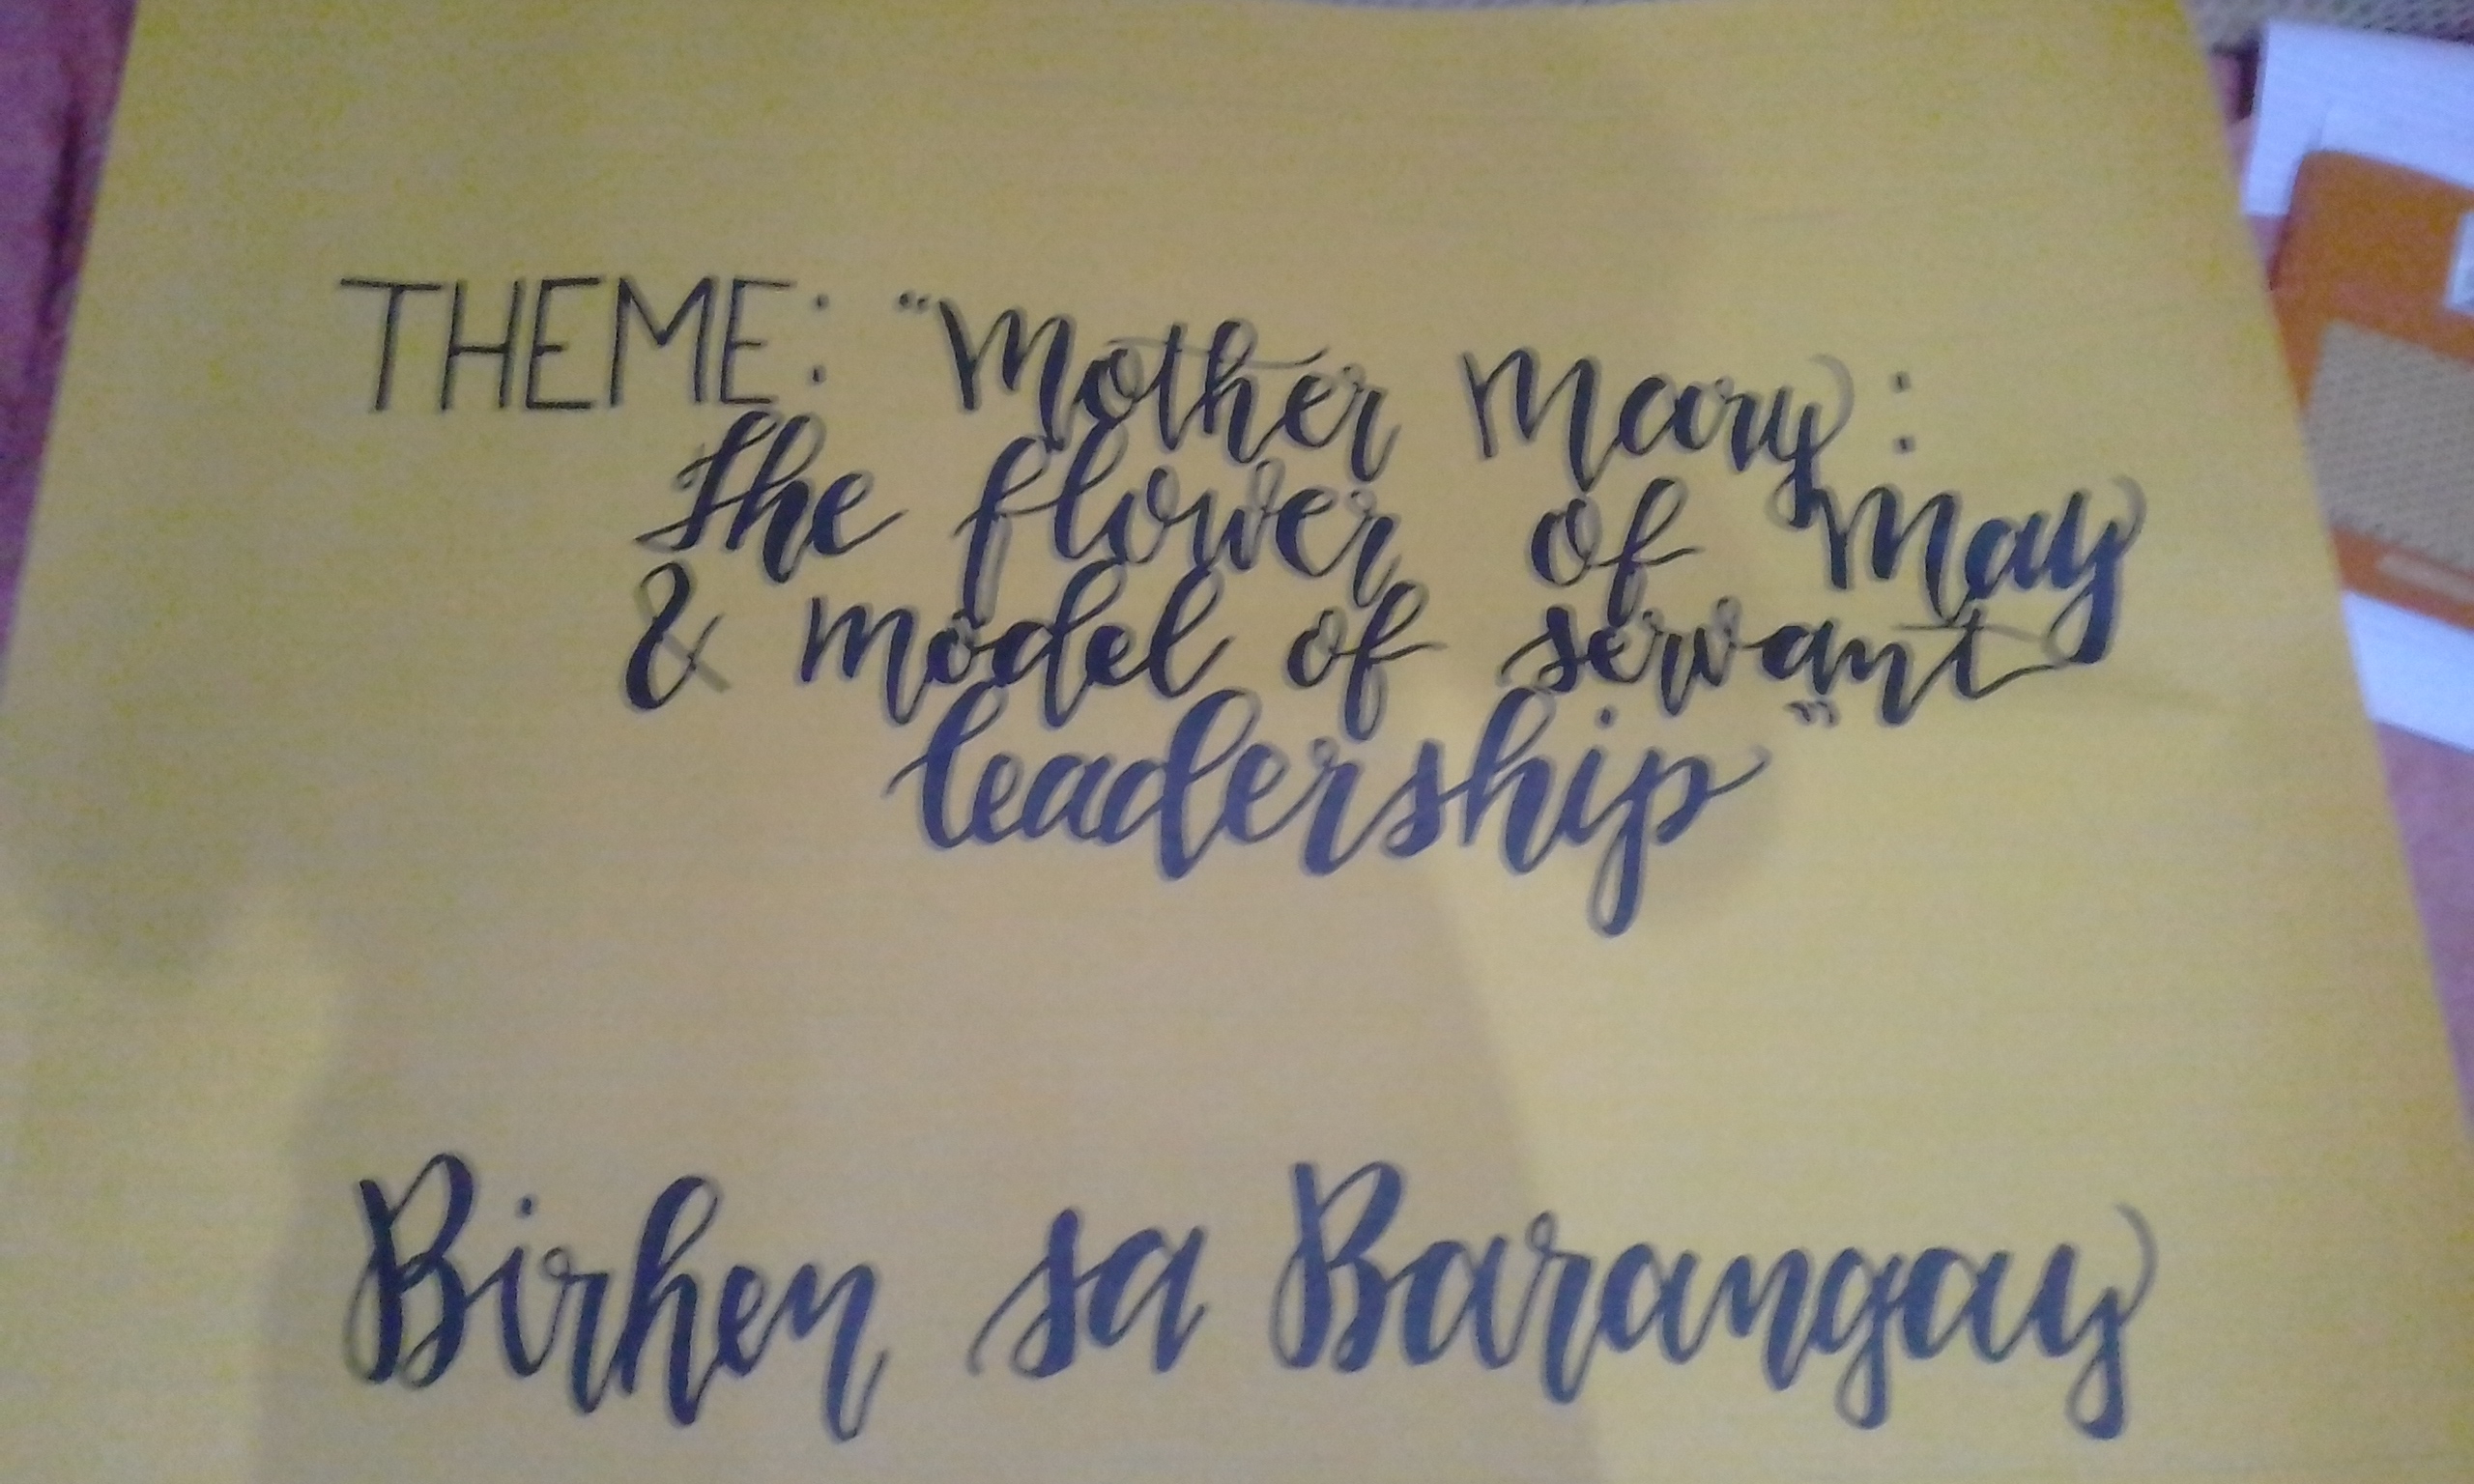 THEME: "Mother Mary:
The flower of May
& model of servant
leadership"
Birhen sa Barangay